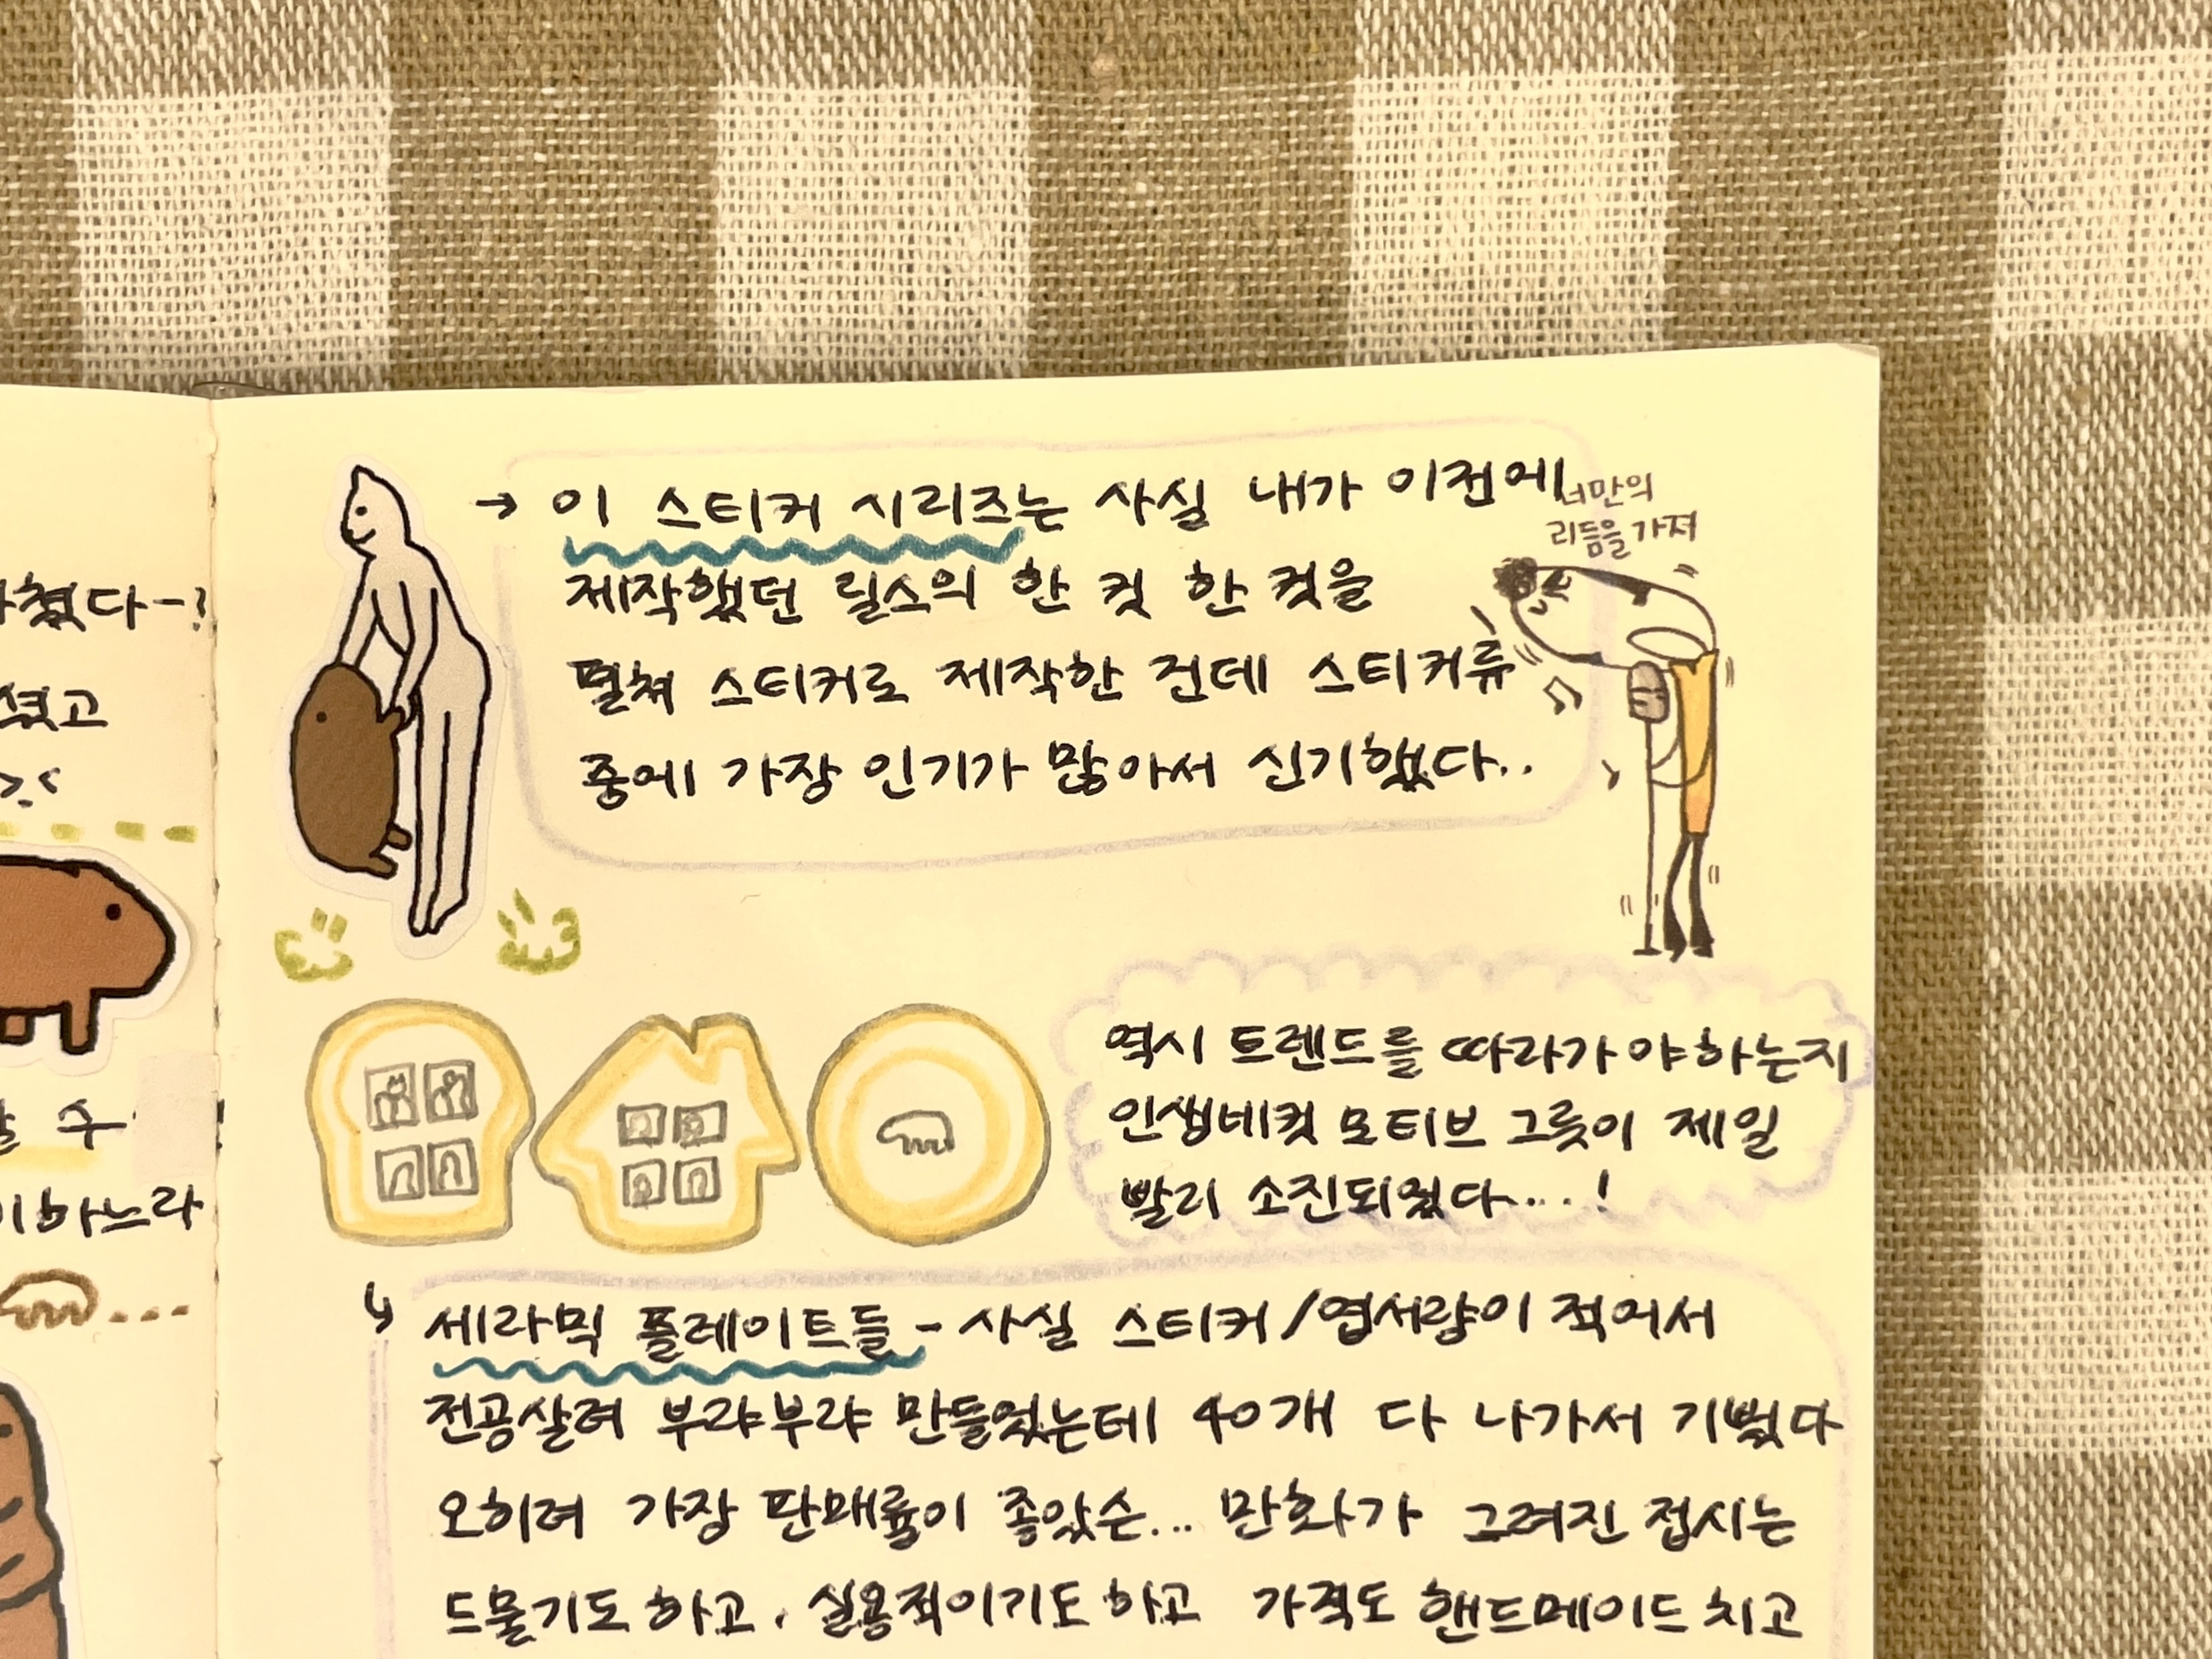 쳤다-?
셨고
>.<
수
하느라
→ 이 스티커 시리즈는 사실 내가 이전에
제작했던 릴스의 한 컷 한 컷을
펼쳐 스티커로 제작한 건데 스티커류
중에 가장 인기가 많아서 신기했다..
너만의
리듬을 가져
역시 트렌드를 따라가야하는지
인생네컷 모티브 그릇이 제일
빨리 소진되었다....!
↳ 세라믹 플레이트들 - 사실 스티커/엽서량이 적어서
전공살려 부랴부랴 만들었는데 40개 다 나가서 기뻤다
오히려 가장 판매률이 좋았슨... 만화가 그려진 접시는
드물기도 하고, 실용적이기도 하고 가격도 핸드메이드 치고